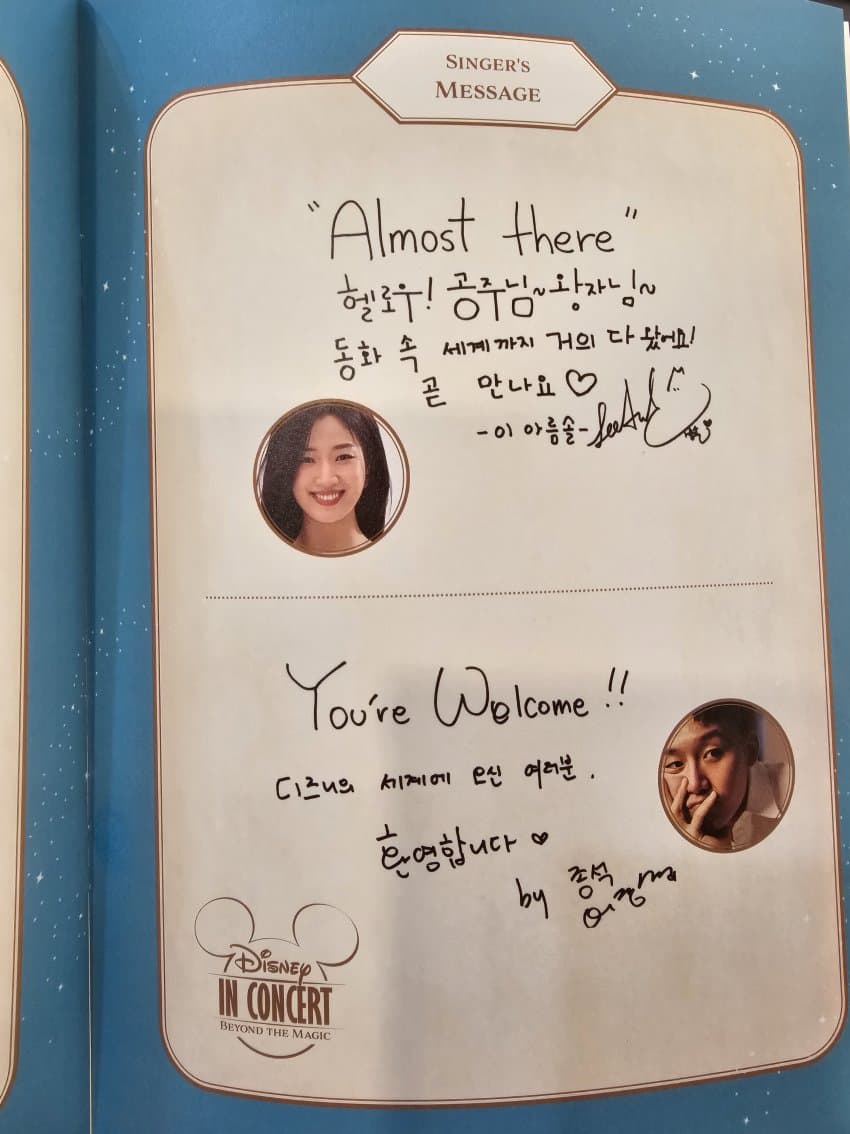 SINGER'S
MESSAGE
"Almost there"
헬로우! 공주님~왕자님~
동화 속 세계까지 거의 다 왔어요!
곧 만나요♡
-이 아름솔-
You're Welcome!!
디즈니의 세계에 오신 여러분.
환영합니다♡
by 종석
DISNEY
IN CONCERT
BEYOND THE MAGIC